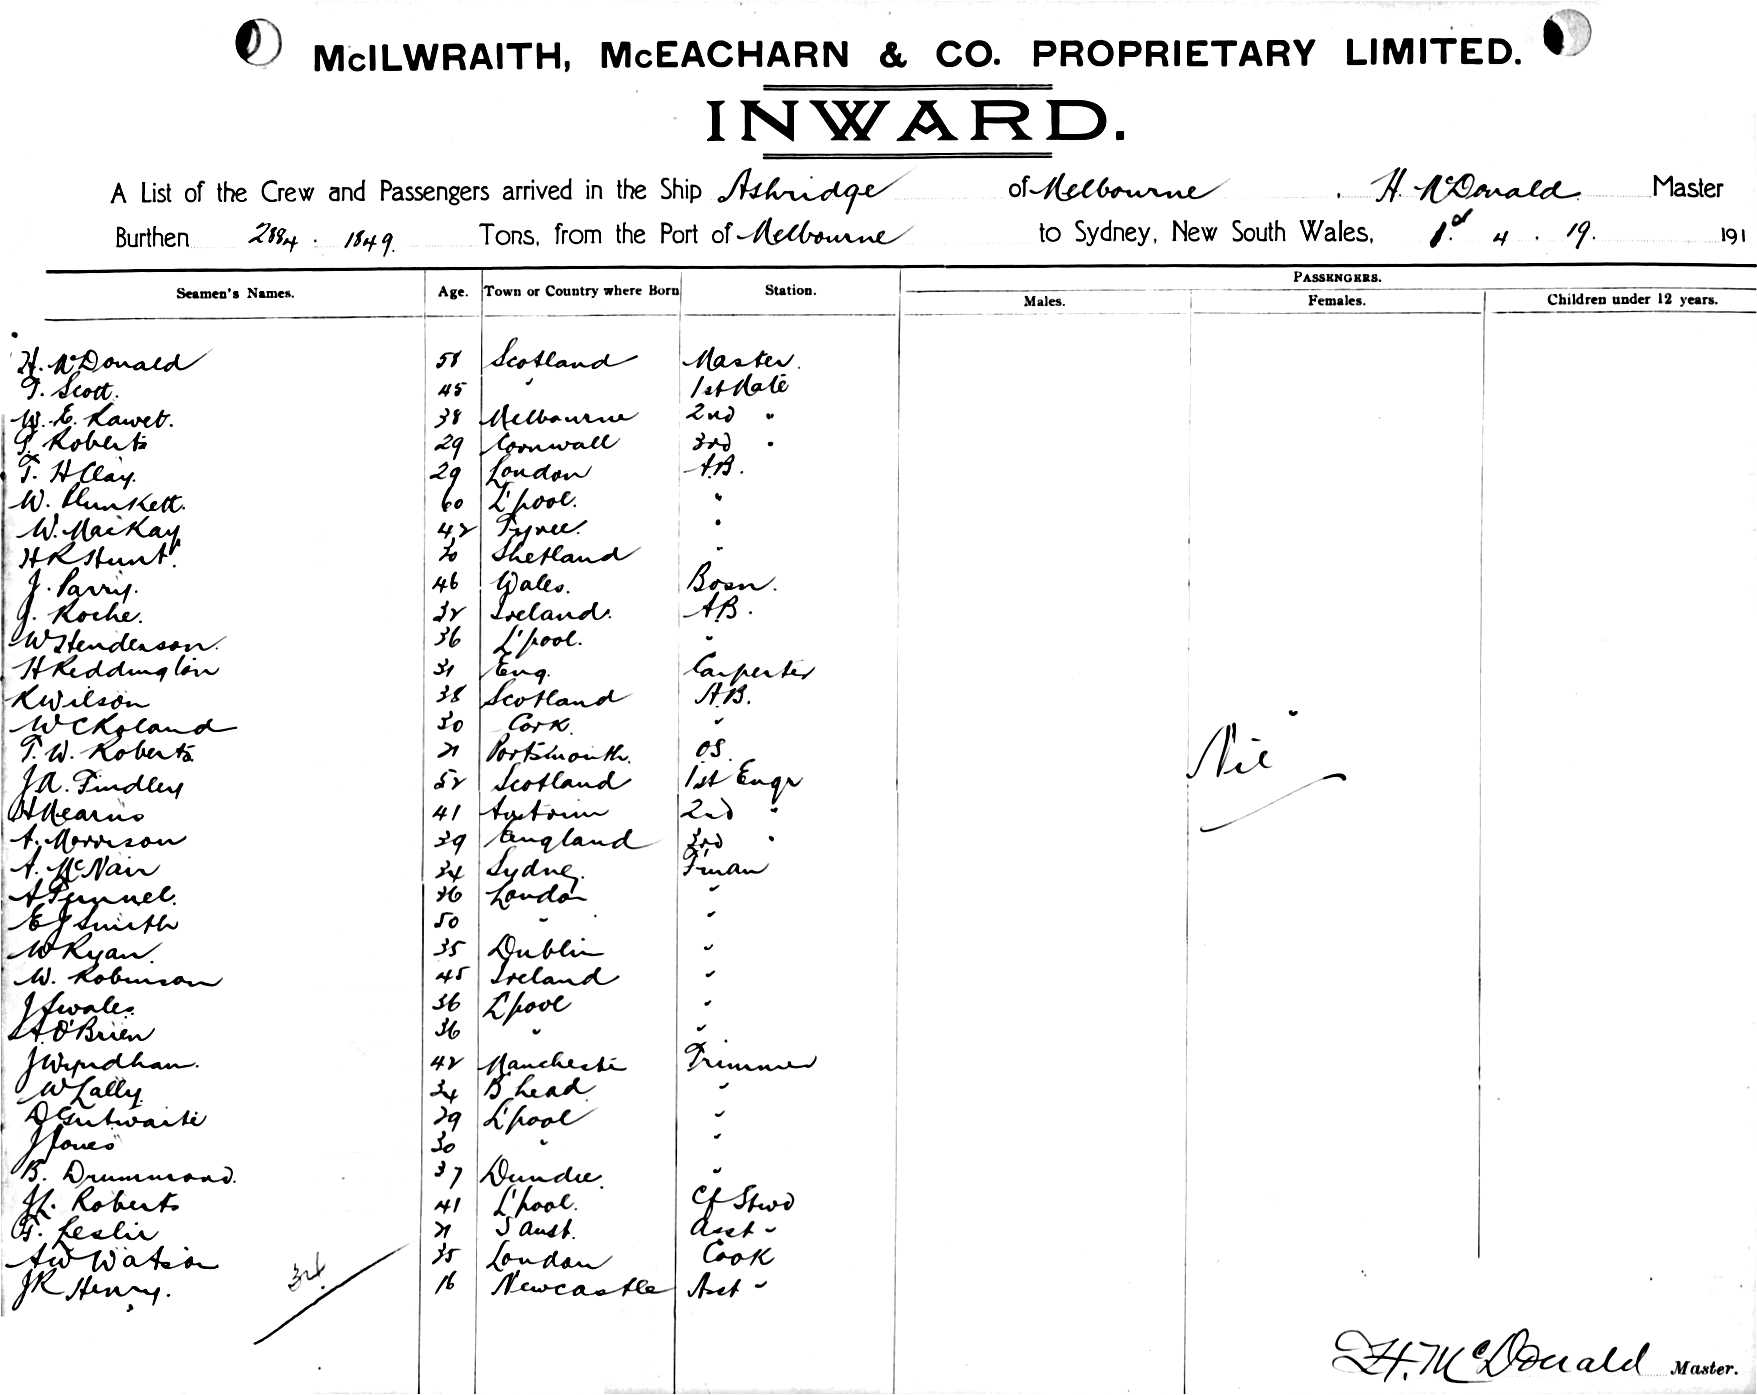 McILWRAITH, McEACHARN & CO. PROPRIETARY LIMITED.
INWARD.
A List of the Crew and Passengers arrived in the Ship Ashridge of Melbourne, H. McDonald Master
Burthen 2884 . 1849 Tons, from the Port of Melbourne to Sydney, New South Wales, 4 . 19. 191
PASSENGERS.
Seamen's Names. Age. Town or Country where Born Station. Males. Females. Children under 12 years.
H. McDonald 58 Scotland Master.
T. Scott. 45 " 1st Mate
W. E. 38 Melbourne 2nd "
Roberts 29 Cornwall 3rd "
T. H Clay. 29 London A.B.
W. Plunkett. 60 L'pool. "
W. MacKay 42 Tyree. "
H R Hunt. Shetland "
J. Parry. 46 Wales. Bosn.
J. Roche. 32 Ireland. A.B.
W Henderson. 36 L'pool. "
H Reddington 31 Eng. Carpenter
R Wilson 38 Scotland A.B.
W C Roland 30 Cork. "
T. W. Roberts 21 Portsmouth. O.S.
J A. Findley 52 Scotland 1st Engr
H Mearns 41 2nd "
A. Morrison 39 England 3rd "
A. McNair 34 Sydney. F'man
A 26 London "
E J Smith 50 " "
W Ryan. 35 Dublin "
W. Robinson 45 Ireland "
J Swales. 36 L'pool "
A O'Brien 36 " "
J Wyndham. 42 Manchester Trimmer
W Lally. 34 B'head "
D 29 L'pool "
J Jones 30 " "
B. Drummond. 37 Dundee. "
J L. Roberts 41 L'pool. Cf Stwd
G. Leslie 21 S Aust. Asst "
A W Watson 35 London Cook
J R Henry. 16 Newcastle Asst "
Nil
34
H. McDonald Master.